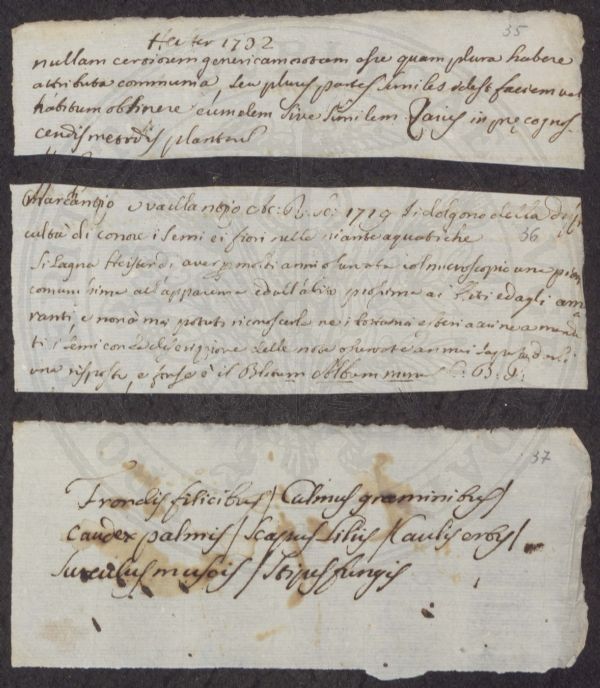 35
Heister 1732
nullam certiorem genericam notam esse quam plura habere
attributa communia, seu plures partes similes idest faciem vel
habitum obtinere eumdem sive similem Raius in precognos
cendis metodis plantarum
36
Marcantojo e vaillantojo Ac: R. Sc: 1719 si dolgono della diffi
cultà di conore i semi e i fiori nelle piante aquatiche
Si lagna Heister di aver molti anni osservata col microscopio una pianta
comunissima all'apparenza ed all'abito prossima ai Bliti ed agli ama
ranti, e non à mai potuti riconoscerla ne i
ti i semi con la descrizione delle note osservate a
una risposta, e forse è il Blitum album minus C: B. P:
37
Frondis filicibus / Culmus graminibus /
Caudex palmis / Scapus Liliis / Caulis erbis /
Surculus muscis / Stipes fungis